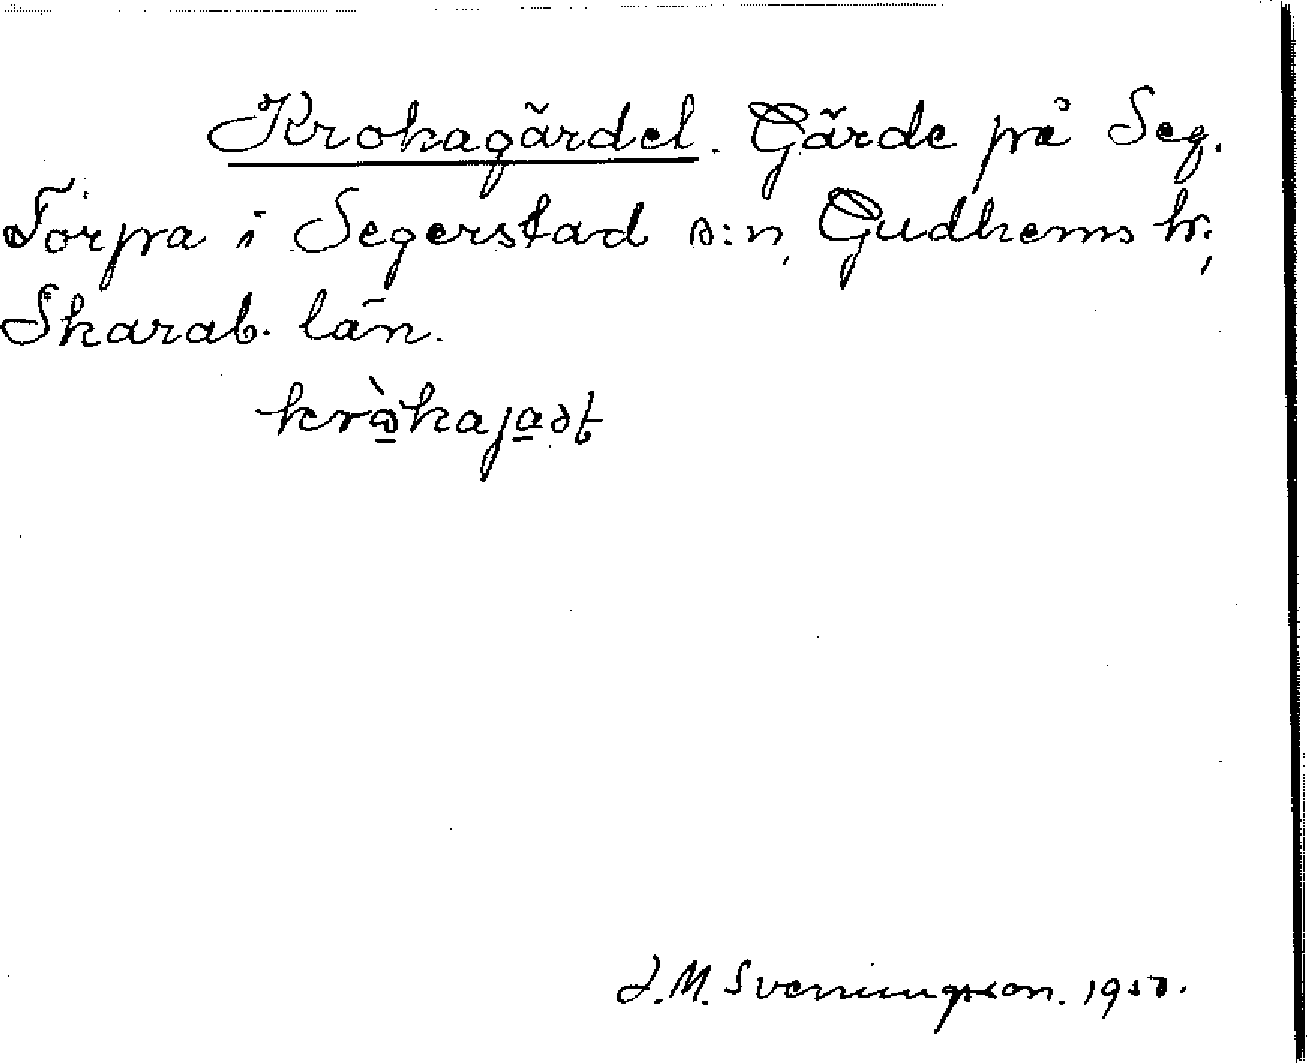 Krokagärdet. Gärde på Seg.
Torpa i Segerstad s:n, Gudhems hr,
Skarab. län.
J. M. Sveningsson.